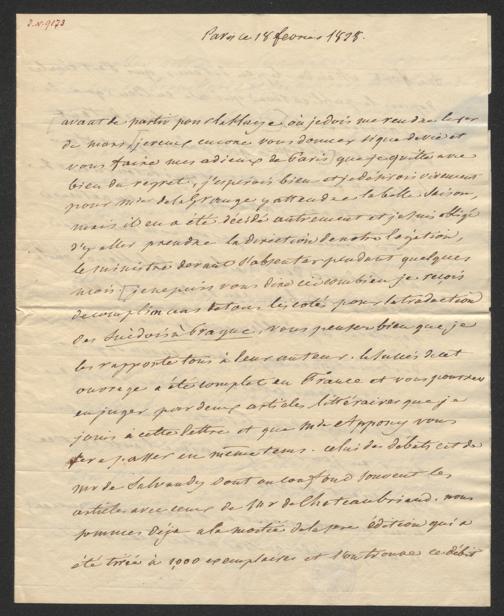 I.N. 9173
Paris ce 18 fevrier 1828.
avant de partir pour la Haye où je dois me rendre le 1er
de mars, je veux encore vous donner signe de vie et
vous faire mes adieux de Paris que je quitte avec
bien du regret, j'esperais bien et je désirois vivement
pour Mme de la Grange y attendre la belle saison,
mais il en a été décidé autrement et je suis obligé
d'y aller prendre la direction de notre légation,
le ministre devant s'absenter pendant quelques
mois, je ne puis vous dire ici combien je reçois
de complimens de tous les coté pour la traduction
des Suédois à Prague, vous pensez bien que je
les rapporte tous à leur auteur. le succès de cet
ouvrage a été complet en France et vous pourrez
en juger par deux articles littéraires que je
joins à cette lettre et que Mr d'Appony vous
fera passer en même tems. celui des débats est de
Mr de Salvandy dont on confond souvent les
articles avec ceux de Mr de Chateaubriand. nous
sommes déja a la moitié de la pre édition qui a
été tirée à 1,000 exemplaires et l'on trouve ce débit